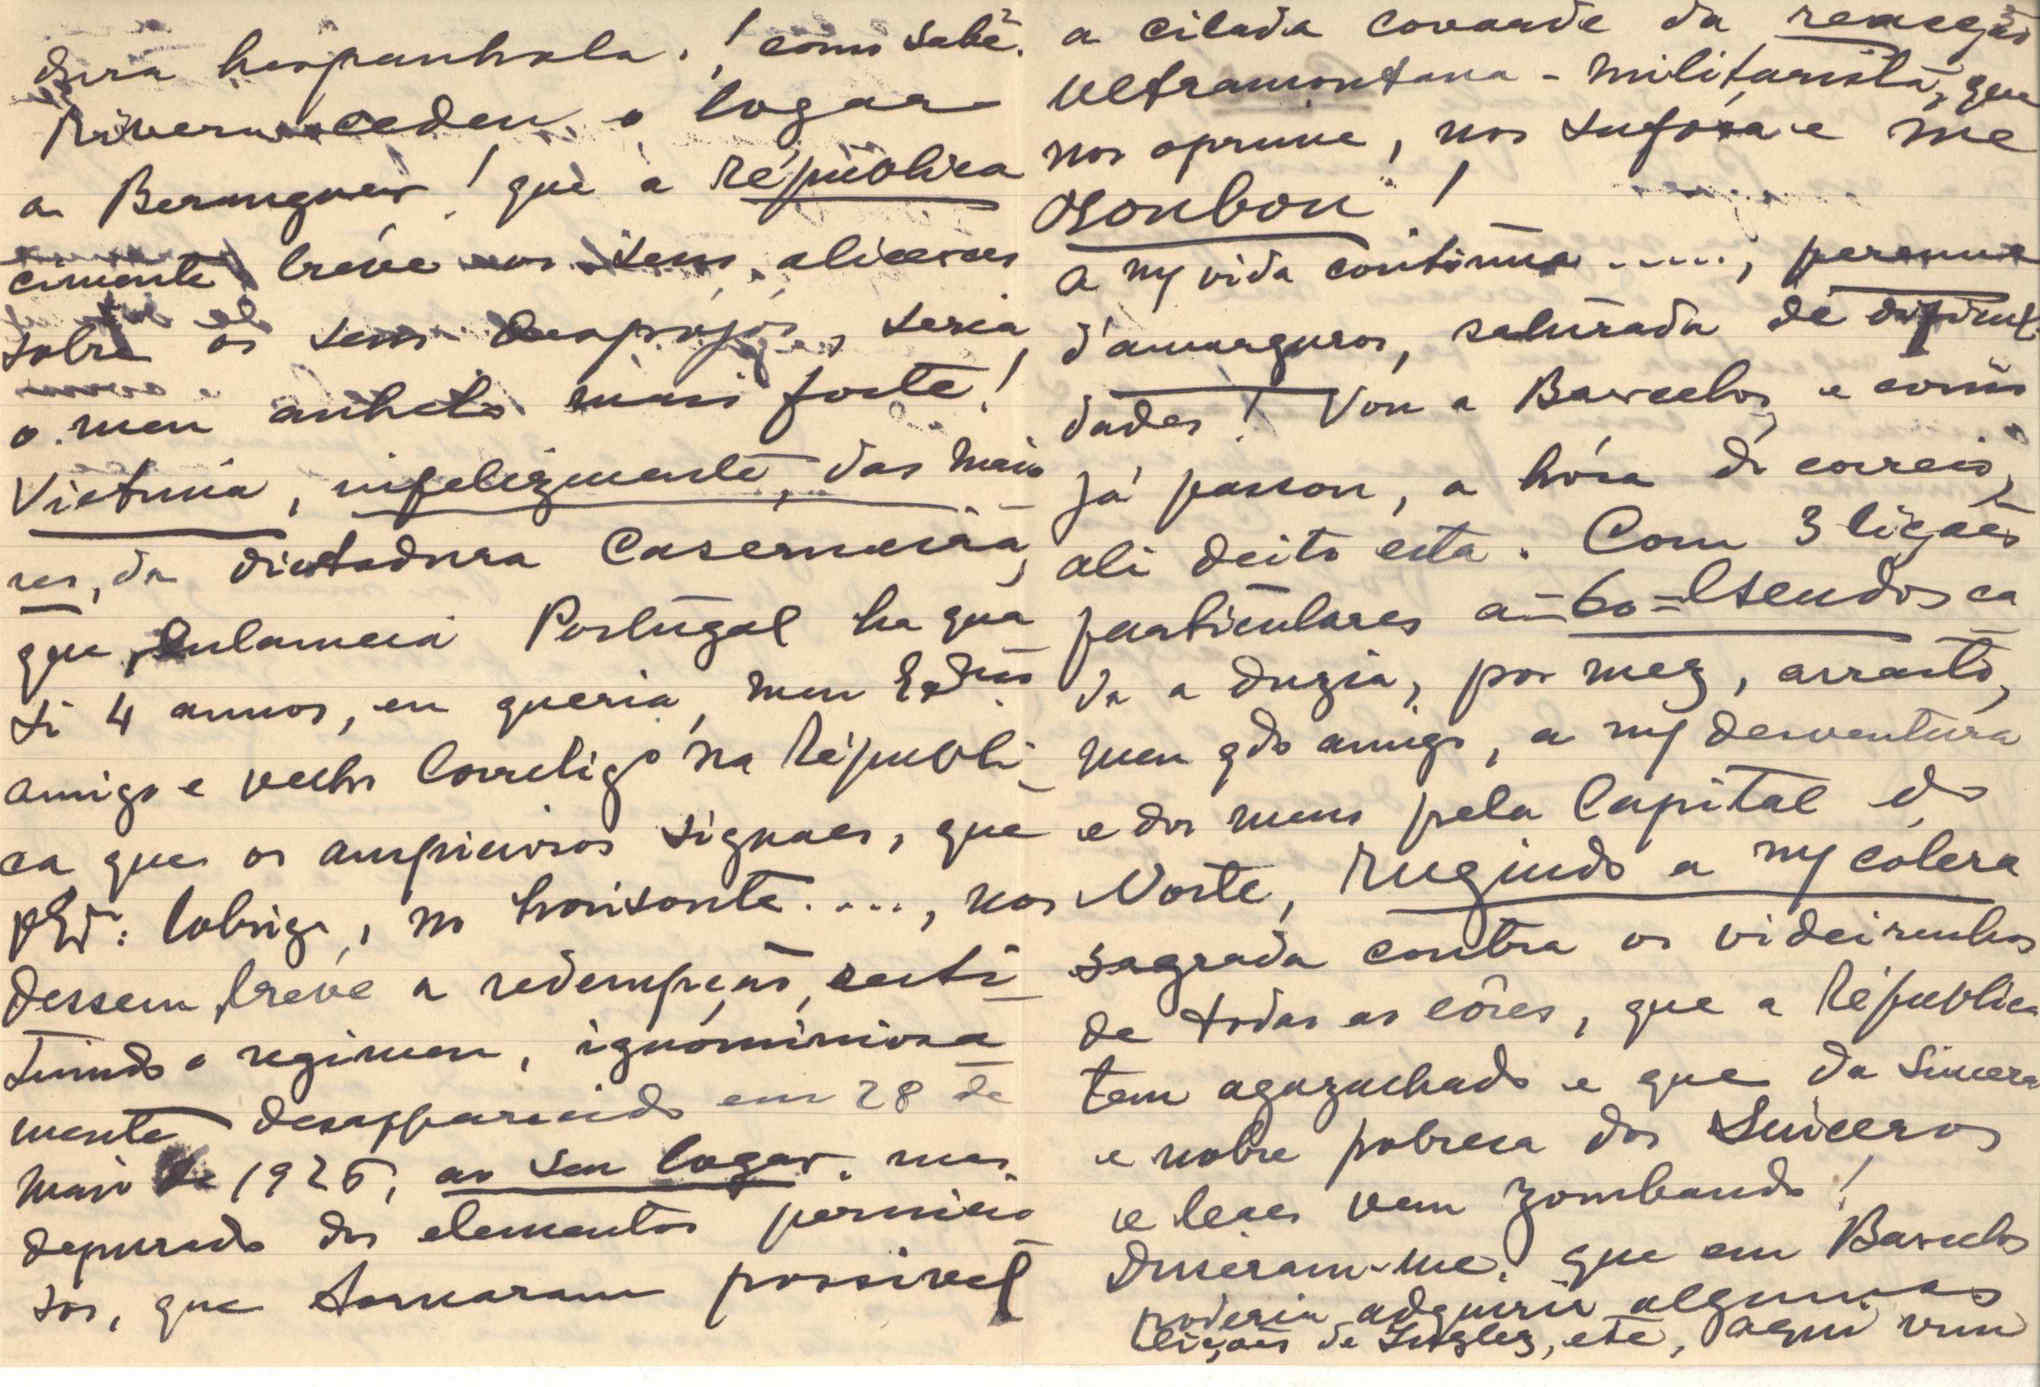 dura hespanhola.! como sabe.
Rivera cedeu o logar
a Berenguer! que a Républica
cimente bréve os seus alicerces
sobre os seus despójos, seria
o meu anhelo mais forte!
Victima, infelizmente, das maio
res, da dictadura Caserneira,
que enlameia Portugal ha qua
si 4 annos, eu queria, meu
amigo e velho Correligº na Républi
ca que os auspiciosos signaes, que
lobriga, no horisonte...., nos
dessem bréve a redempção, resti
tuindo o regimen, ignóminiosa
mente desapparecido em 28 de
Maio de 1926, ao seu logar, mas
depurado dos elementos pernicio
sos, que tornaram possivel
a cilada covarde da reacção
ultramontana-militarista, que
nos oprime, nos sufóca e me
roubou!
a mª vida continúa ....., perenne
d'amarguras, saturada de dificul
dades! Vou a Barcelos, e como
já passou, a hóra do correio,
ali deito esta. Com 3 lições
particulares a=60=Escudos ca
da a duzia, por mez, arrasto,
meu qdo amigo, a mª desventura
e dos meus pela Capital do
Norte, rugindo a mª cólera
sagrada contra os videirinhos
de todas as côres, que a Républica
tem agazachado e que da sincera
e nobre pobresa dos Sinceros
e leaes vem zombando!
Disseram-me, que em Barcelos
poderia adquirir algumas
lições de Inglez, etc, aqui vim